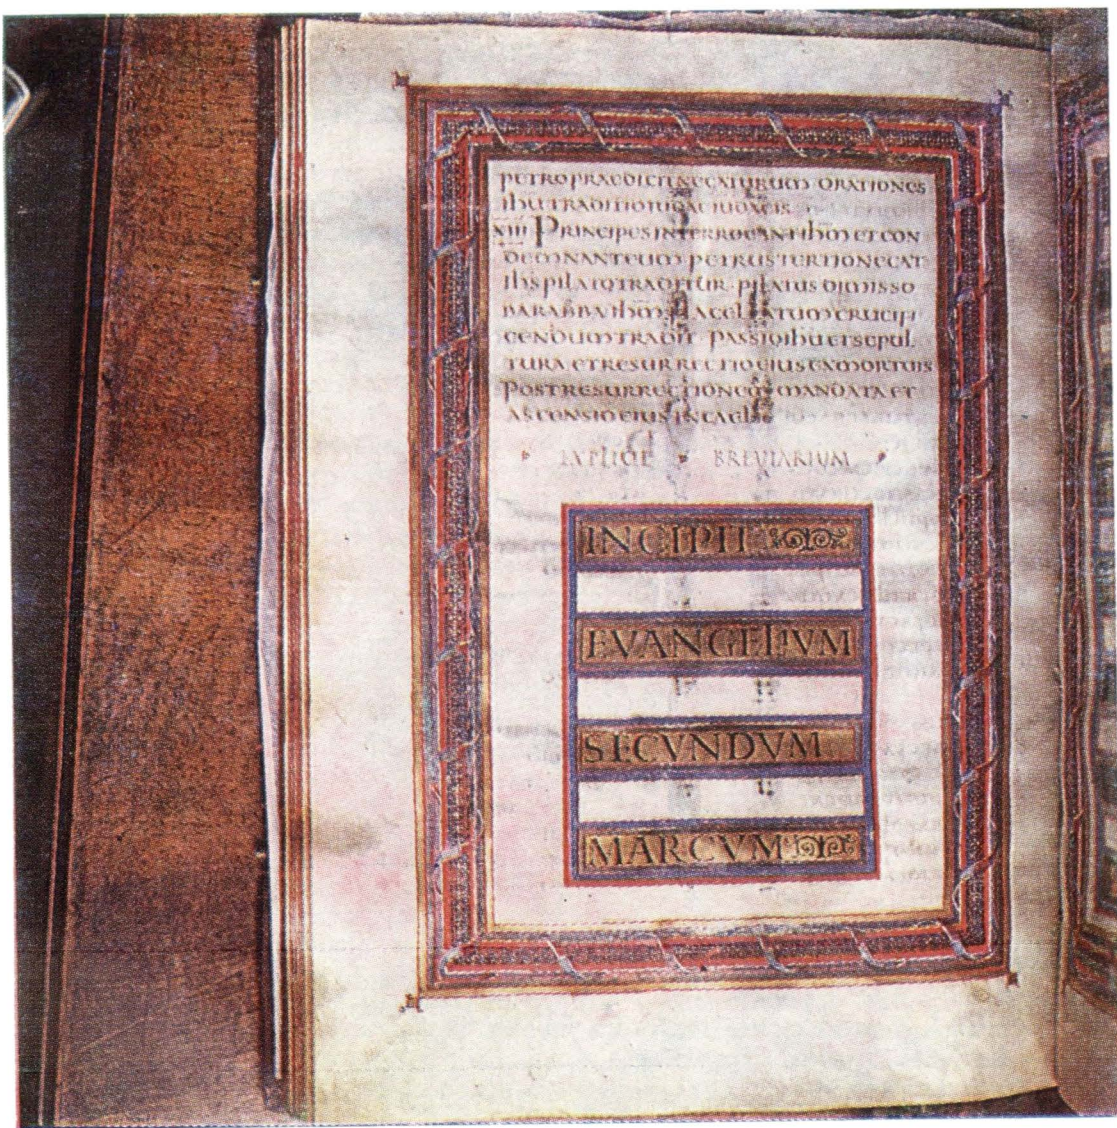 PETRO PRAEDICIT NEGATURUM ORATIONES
IHU TRADITIO IUDAE
XIII PRINCIPES INTERROGANT IHM ET CON
DEMNANT EUM PETRUS TER NEGAT
IHS PILATO TRADITUR PILATUS DIMISSO
BARABBA IHM FLAGELLATUM CRUCIFI
GENDUM TRADIT PASSIO IHU ET SEPUL
TURA ET RESURRECTIO EIUS EX MORTUIS
POST RESURRECTIONEM MANDATA ET
ASCENSIO EIUS IN CAELIS
EXPLICIT BREVIARIUM
INCIPIT
EVANGELIVM
SECVNDVM
MARCVM